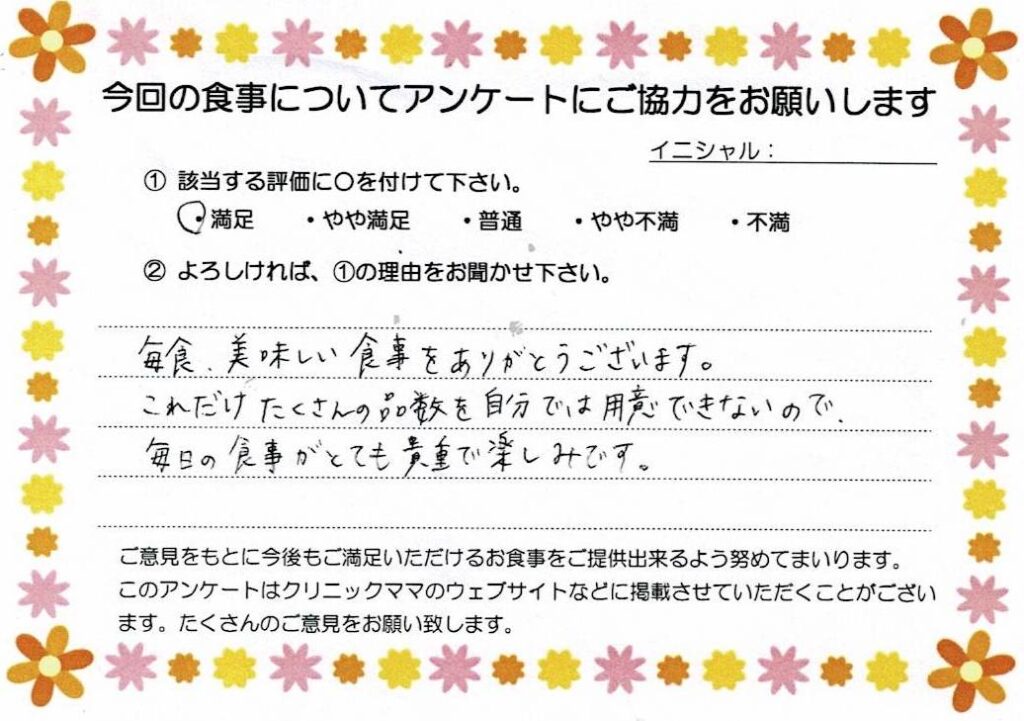 今回の食事についてアンケートにご協力をお願いします
イニシャル：
① 該当する評価に〇を付けて下さい。
・満足 ・やや満足 ・普通 ・やや不満 ・不満
② よろしければ、①の理由をお聞かせ下さい。
毎食、美味しい食事をありがとうございます。
これだけたくさんの品数を自分では用意できないので、
毎日の食事がとても貴重で楽しみです。
ご意見をもとに今後もご満足いただけるお食事をご提供出来るよう努めてまいります。
このアンケートはクリニックママのウェブサイトなどに掲載させていただくことがござい
ます。たくさんのご意見をお願い致します。